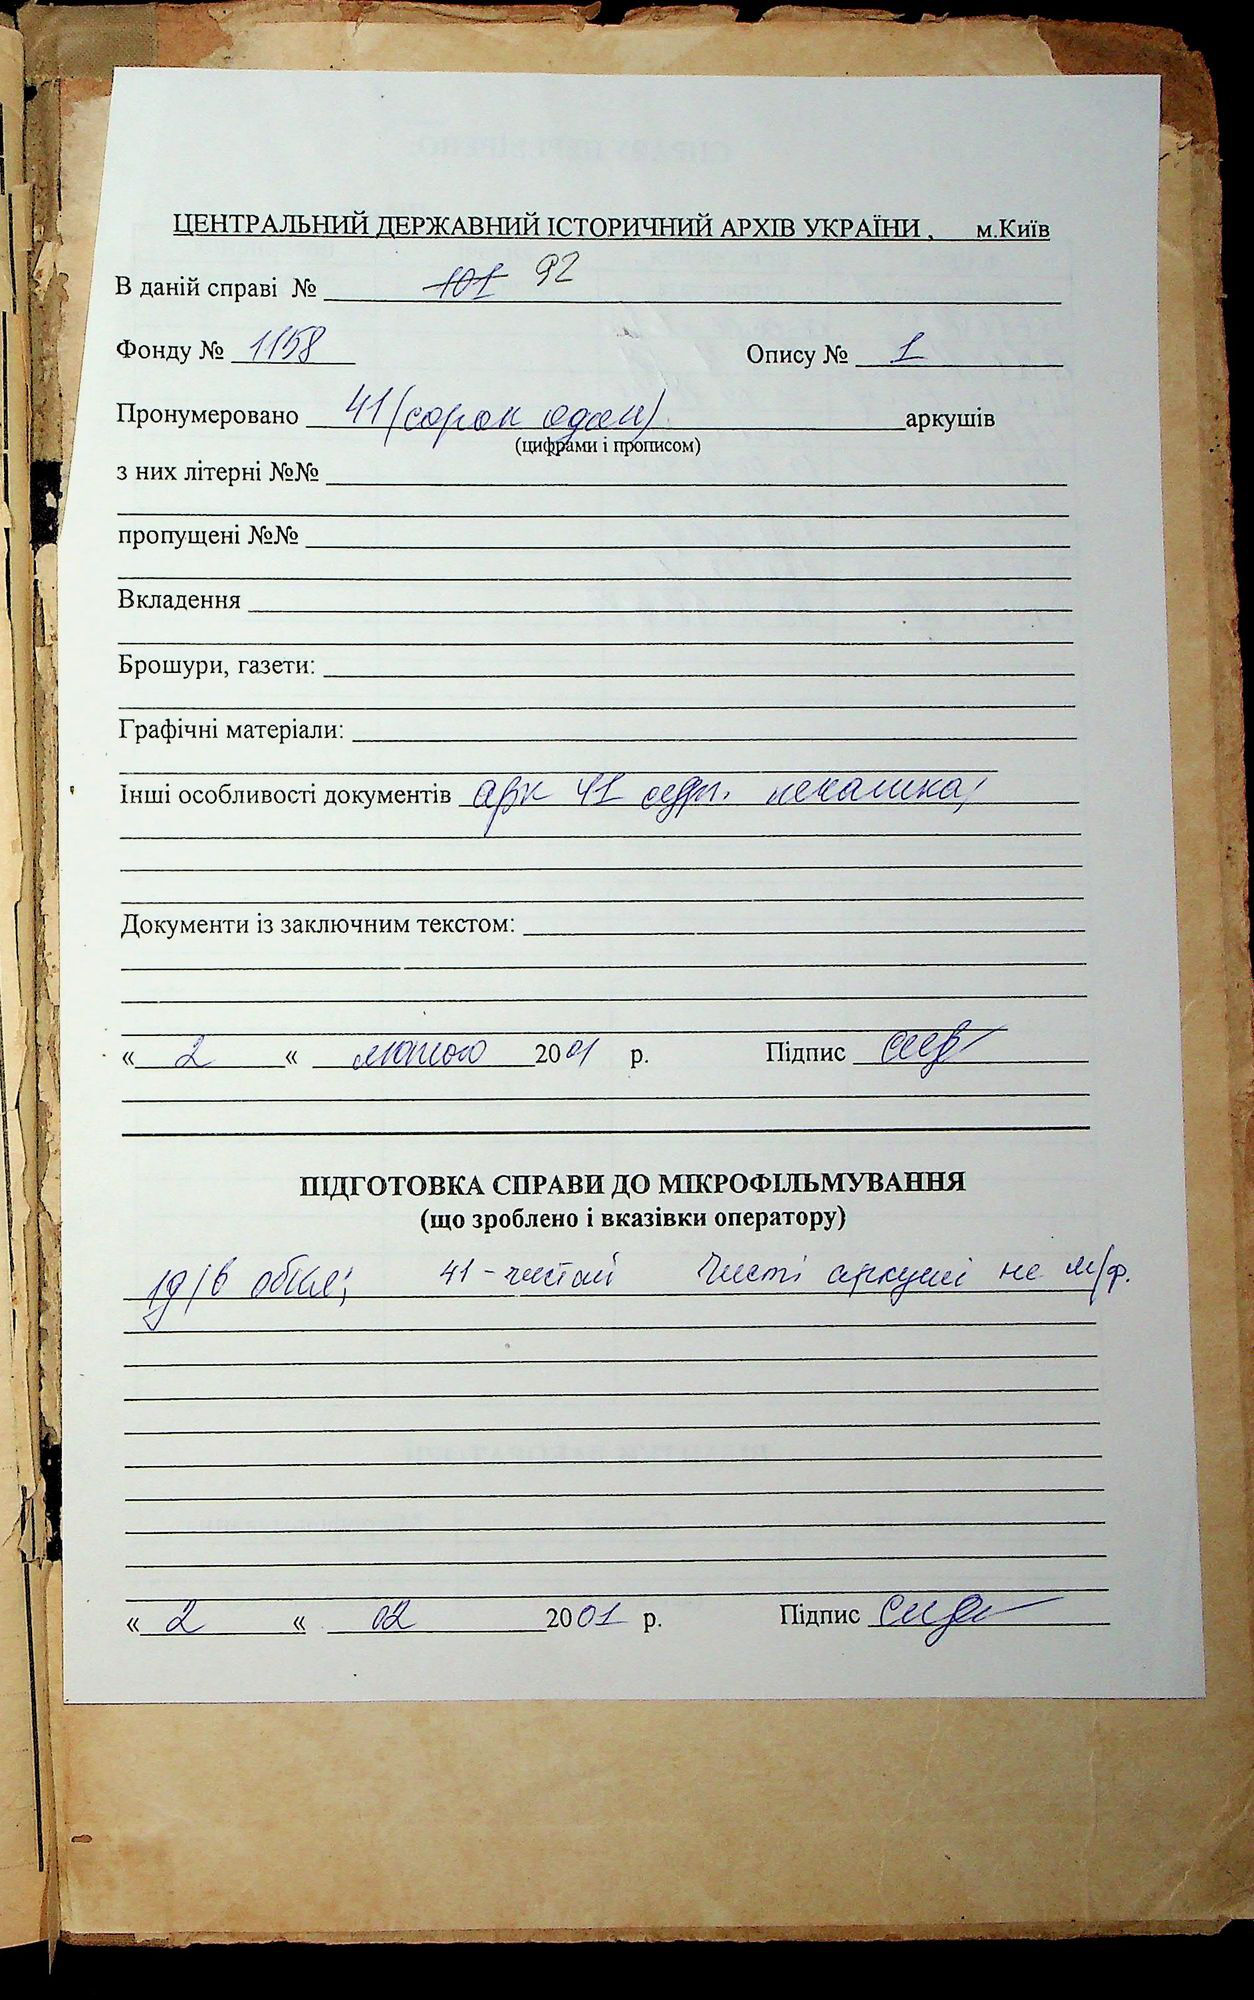 ЦЕНТРАЛЬНИЙ ДЕРЖАВНИЙ ІСТОРИЧНИЙ АРХІВ УКРАЇНИ , м.Київ
В даній справі № 101 92
Фонду № 1158 Опису № 1
Пронумеровано 41 (сорок один) аркушів
(цифрами і прописом)
з них літерні №№
пропущені №№
Вкладення
Брошури, газети:
Графічні матеріали:
Інші особливості документів арк 41
Документи із заключним текстом:
« 2 « лютого 2001 р. Підпис
ПІДГОТОВКА СПРАВИ ДО МІКРОФІЛЬМУВАННЯ
(що зроблено і вказівки оператору)
41 - чистий Чисті аркуші не м/ф.
« 2 « 02 2001 р. Підпис